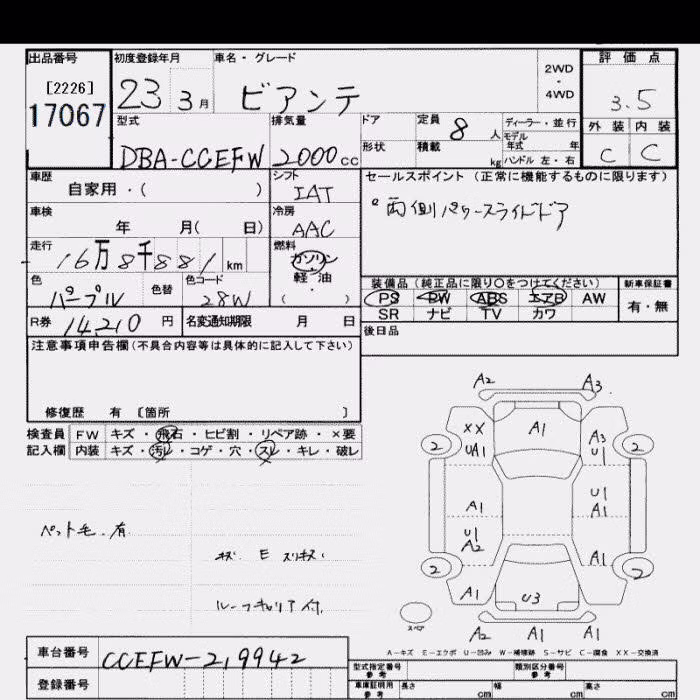 出品番号
[2226]
17067
初度登録年月
23 3月
車名・グレード
ビアンテ
2WD
・
4WD
評価点
3.5
型式
DBA-CCEFW
排気量
2000cc
ドア
形状
定員
8人
積載
kg
ディーラー・並行
モデル
年式 年
ハンドル 左・右
外装 内装
C C
車歴
自家用・( )
シフト
IAT
セールスポイント (正常に機能するものに限ります)
両側パワースライドドア
車検
年 月( 日)
冷房
AAC
走行
16万8千881km
燃料
ガソリン
・
軽・油
( )
色
パープル
色替
色コード
28W
装備品 (純正品に限り○をつけてください)
PS PW ABS エアB AW
SR ナビ TV カワ
新車保証書
有・無
R券 14,210 円
名変通知期限 月 日
後日品
注意事項申告欄(不具合内容等は具体的に記入して下さい)
修復歴 有 [箇所 ]
検査員 FW キズ・飛石・ヒビ割・リペア跡・×要
記入欄 内装 キズ・汚レ・コゲ・穴・スレ・キレ・破レ
ペット毛.有
ルーフキャリア付
A2 A3
XX
UA1
A1
A3
U1
2 2
A1
U1
A1
U1
A2
A1
2 2
A1
U3
A1
スペア
A2 A1 A1
A-キズ E-エクボ U-凹み W-補修跡 S-サビ C-腐食 XX-交換済
車台番号 CCEFW-219942
登録番号
型式指定番号
参考
類別区分番号
参考
車庫証明用
参考
長さ cm 幅 cm 高さ cm